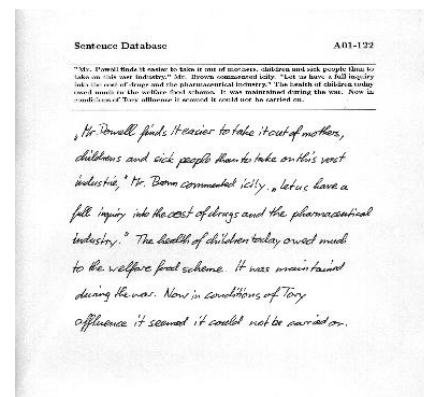 Sentence Database A01-122
"Mr. Powell finds it easier to take it out of mothers, children and sick people than to
take on this vast industry," Mr. Brown commented icily. "Let us have a full inquiry
into the cost of drugs and the pharmaceutical industry." The health of children today
owed much to the welfare food scheme. It was maintained during the war. Now in
conditions of Tory affluence it seemed it could not be carried on.
„Mr. Powell finds it easier to take it out of mothers,
childrens and sick people than to take on this vast
industrie," Mr. Brown commented icily. „Let us have a
full inquiry into the cost of drugs and the pharmaceutical
industry." The health of children today owed much
to the welfare food scheme. It was maintained
during the war. Now in conditions of Tory
affluence it seemed it could not be carried on.